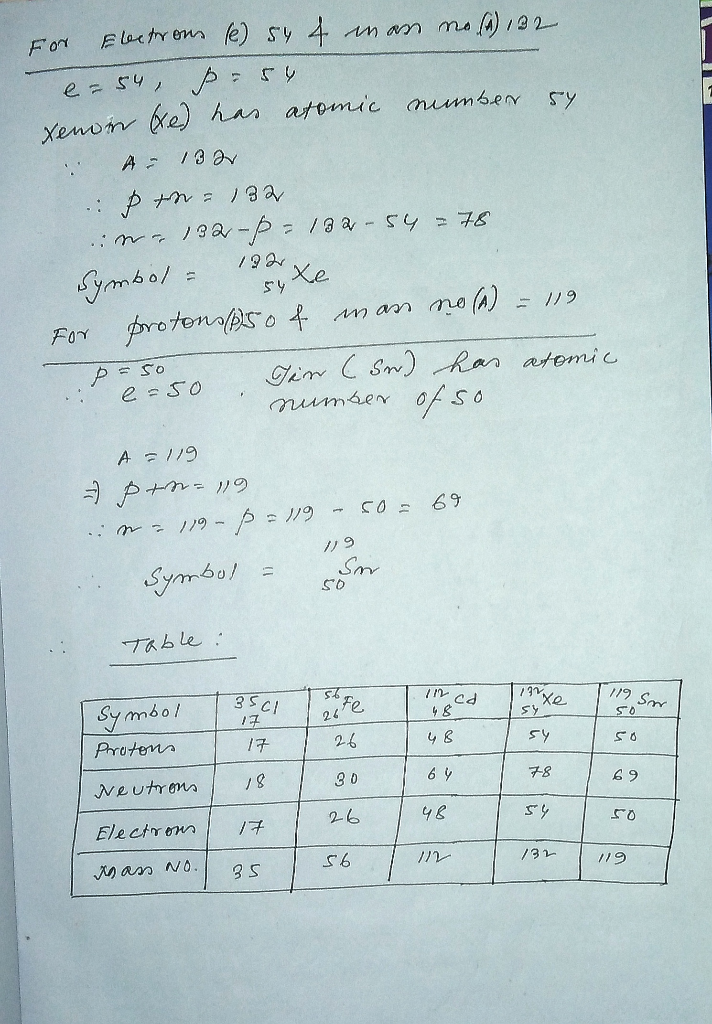 For Electrons (e) 54 & mass no (A) 132
e = 54, p = 54
Xenon (Xe) has atomic number 54
∵ A = 132
∴ p + n = 132
∴ n = 132 - p = 132 - 54 = 78
Symbol = ¹³²₅₄Xe
For protons (p) 50 & mass no (A) = 119
p = 50
∴ e = 50 . Tin (Sn) has atomic
number of 50
A = 119
⇒ p + n = 119
∴ n = 119 - p = 119 - 50 = 69
∴ Symbol = ¹¹⁹₅₀Sn
∴ Table :
Symbol ³⁵₁₇Cl ⁵⁶₂₆Fe ¹¹²₄₈Cd ¹³²₅₄Xe ¹¹⁹₅₀Sn
Protons 17 26 48 54 50
Neutrons 18 30 64 78 69
Electrons 17 26 48 54 50
Mass No. 35 56 112 132 119